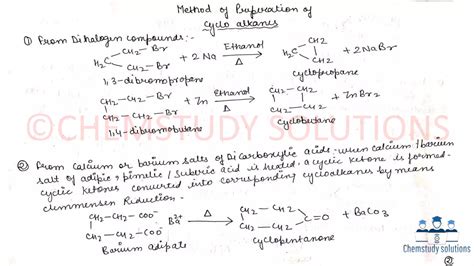 Method of Preparation of
Cyclo alkanes
① From Dihalogen compounds:-
H2C CH2-Br CH2-Br + 2Na Ethanol Δ H2C CH2 CH2 + 2NaBr
1,3-dibromopropane cyclopropane
CH2-CH2-Br CH2-CH2-Br + Zn Ethanol Δ CH2-CH2 CH2-CH2 + ZnBr2
1,4-dibromobutane cyclobutane
©CHEMSTUDY SOLUTIONS
② From calcium or barium salts of Dicarboxylic acids - when calcium/barium
salt of adipic, pimelic / Suberic acid is heated, a cyclic ketone is formed.
cyclic ketones converted into corresponding cycloalkanes by means
clemmensen Reduction.
CH2-CH2-COO- CH2-CH2-COO- Ba2+ Δ CH2-CH2 CH2-CH2 C=O + BaCO3
Barium adipate cyclopentanone
Chemstudy solutions
②